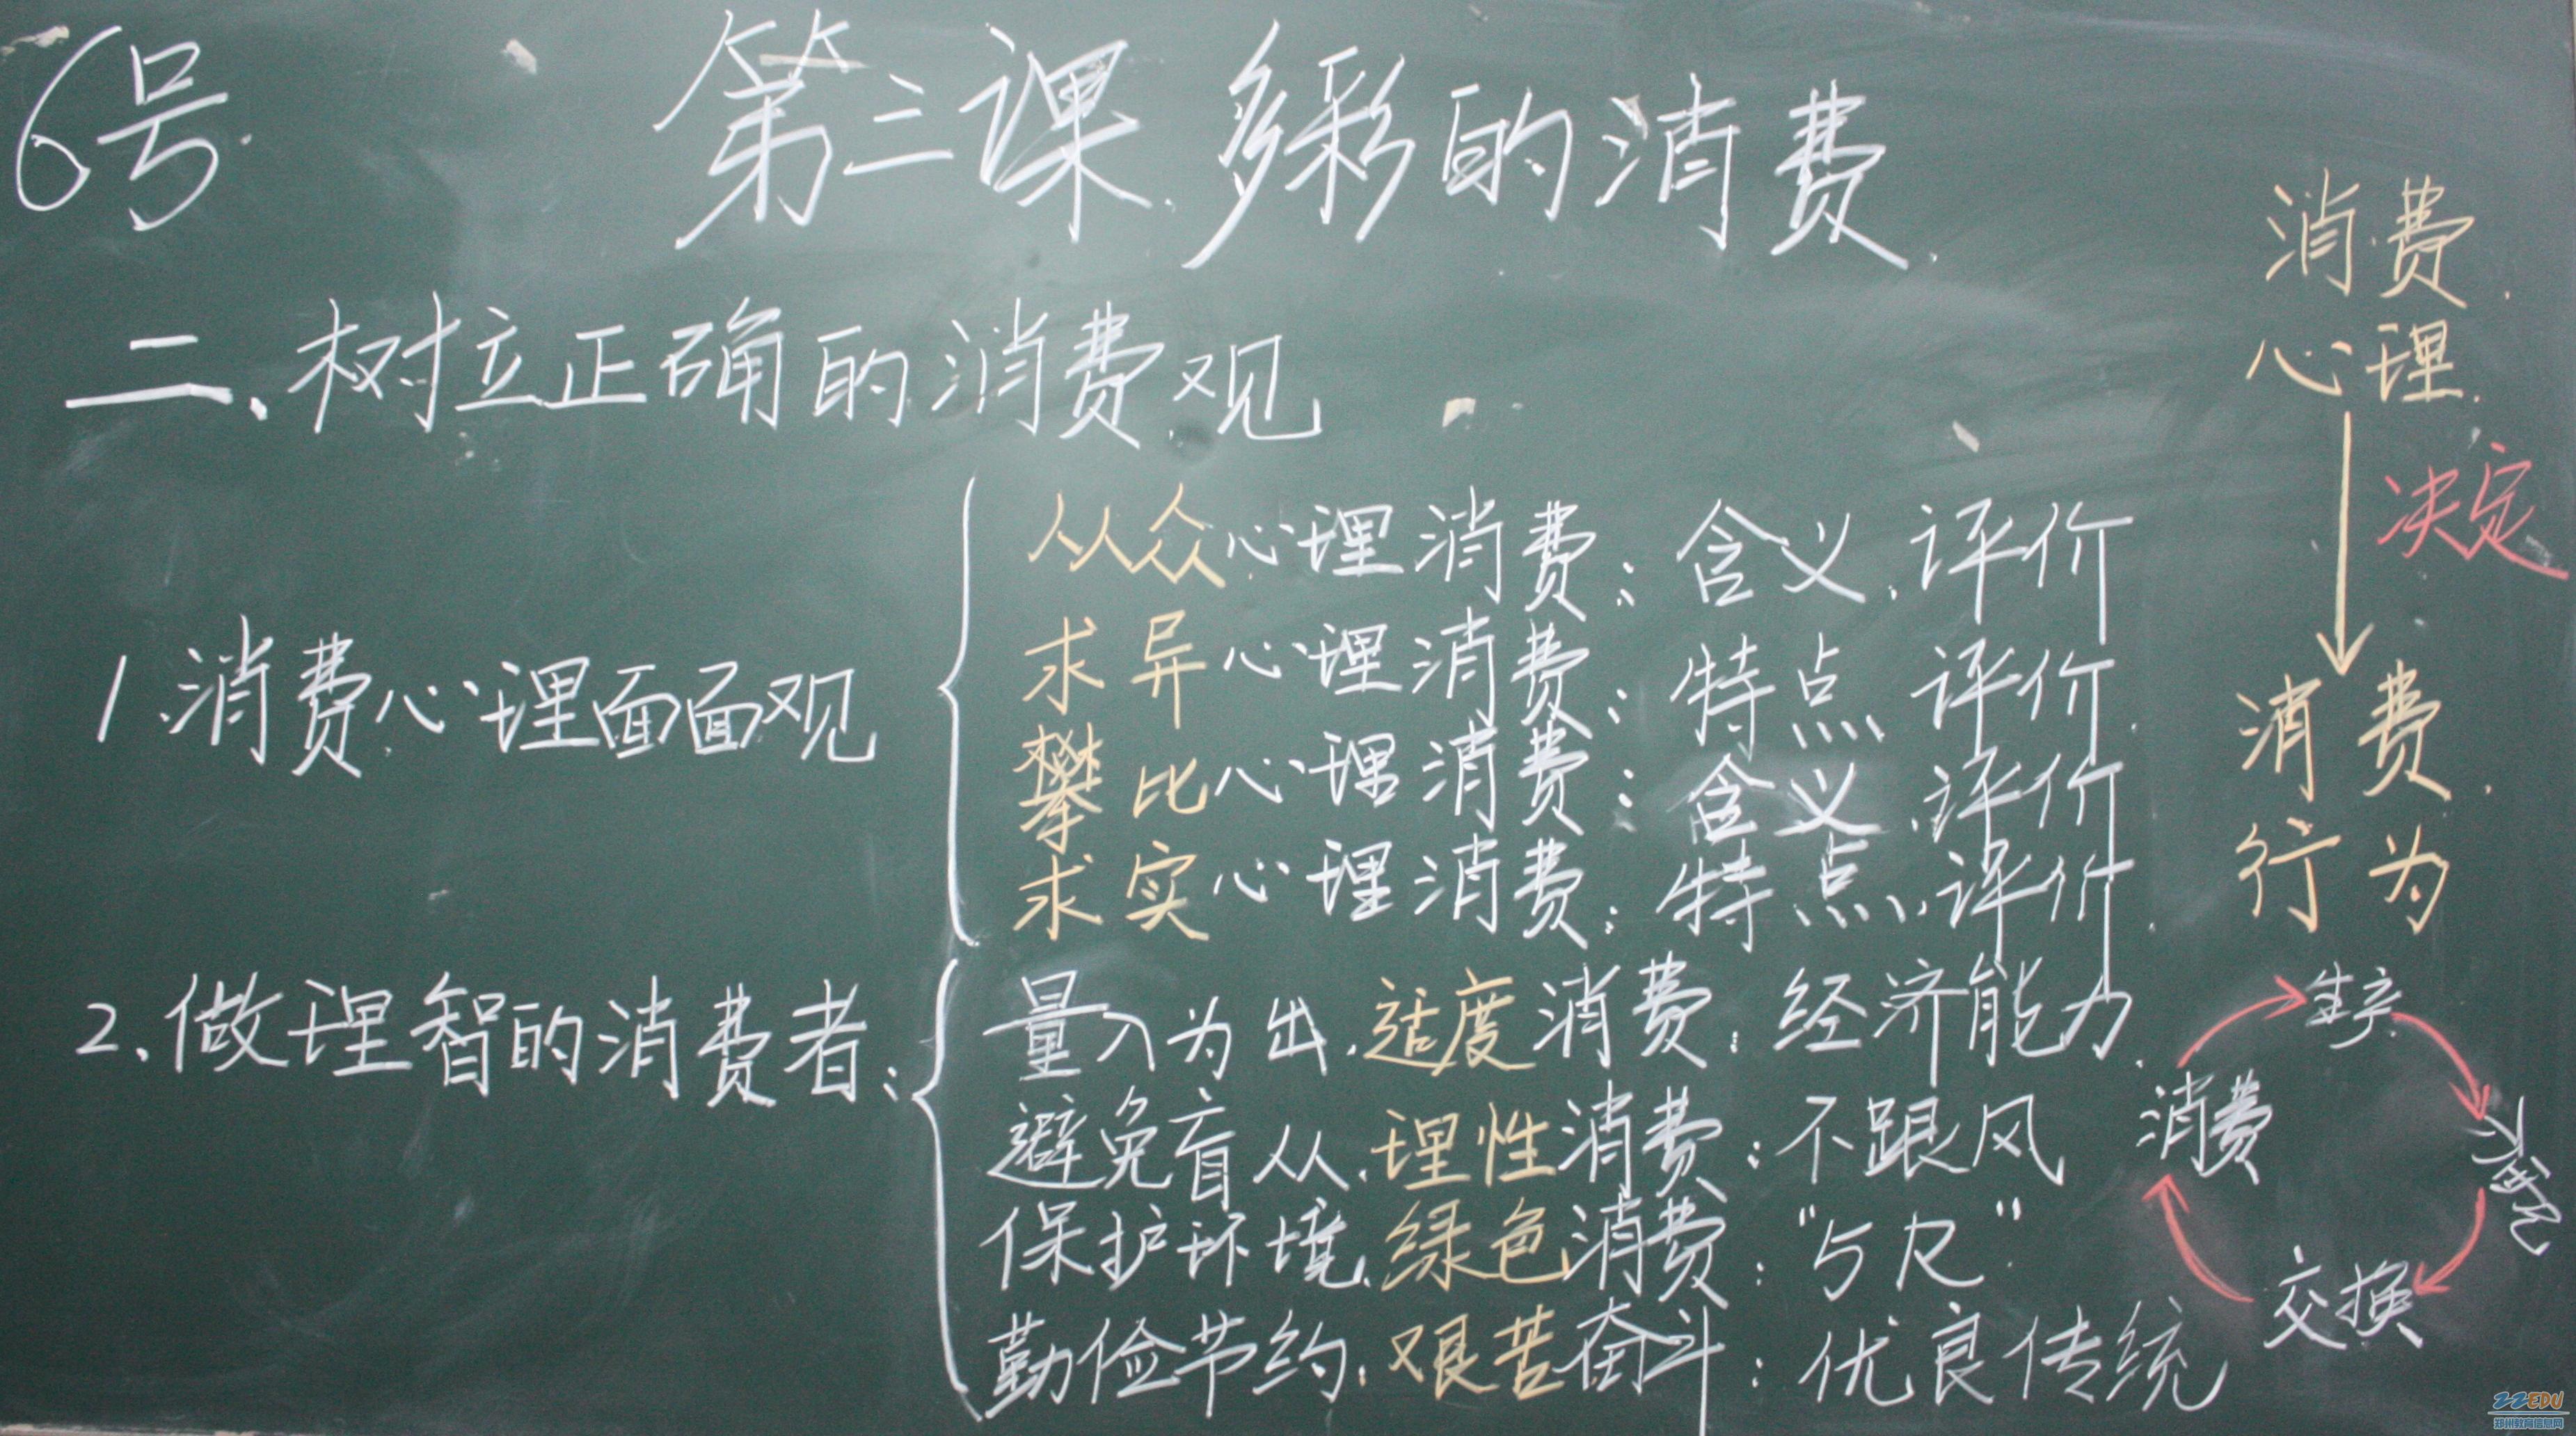 6号
第三课 多彩的消费
二、树立正确的消费观
1.消费心理面面观
从众心理消费：含义、评价
求异心理消费：特点、评价
攀比心理消费：含义、评价
求实心理消费：特点、评价
2、做理智的消费者：
量入为出、适度消费：经济能力
避免盲从、理性消费：不跟风
保护环境、绿色消费："5R"
勤俭节约、艰苦奋斗：优良传统
消费
心理
决定
消费
行为
生产
消费
交换
ZZEDU
郑州教育信息网